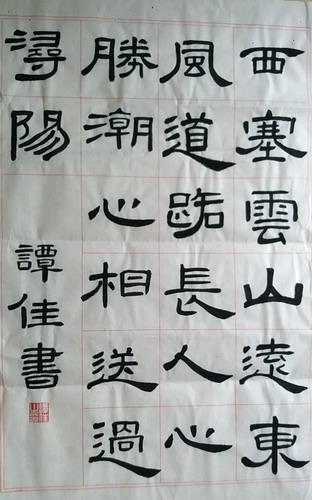 西塞雲山遠東
風道路長人心
勝潮心相送過
潯陽
譚佳書